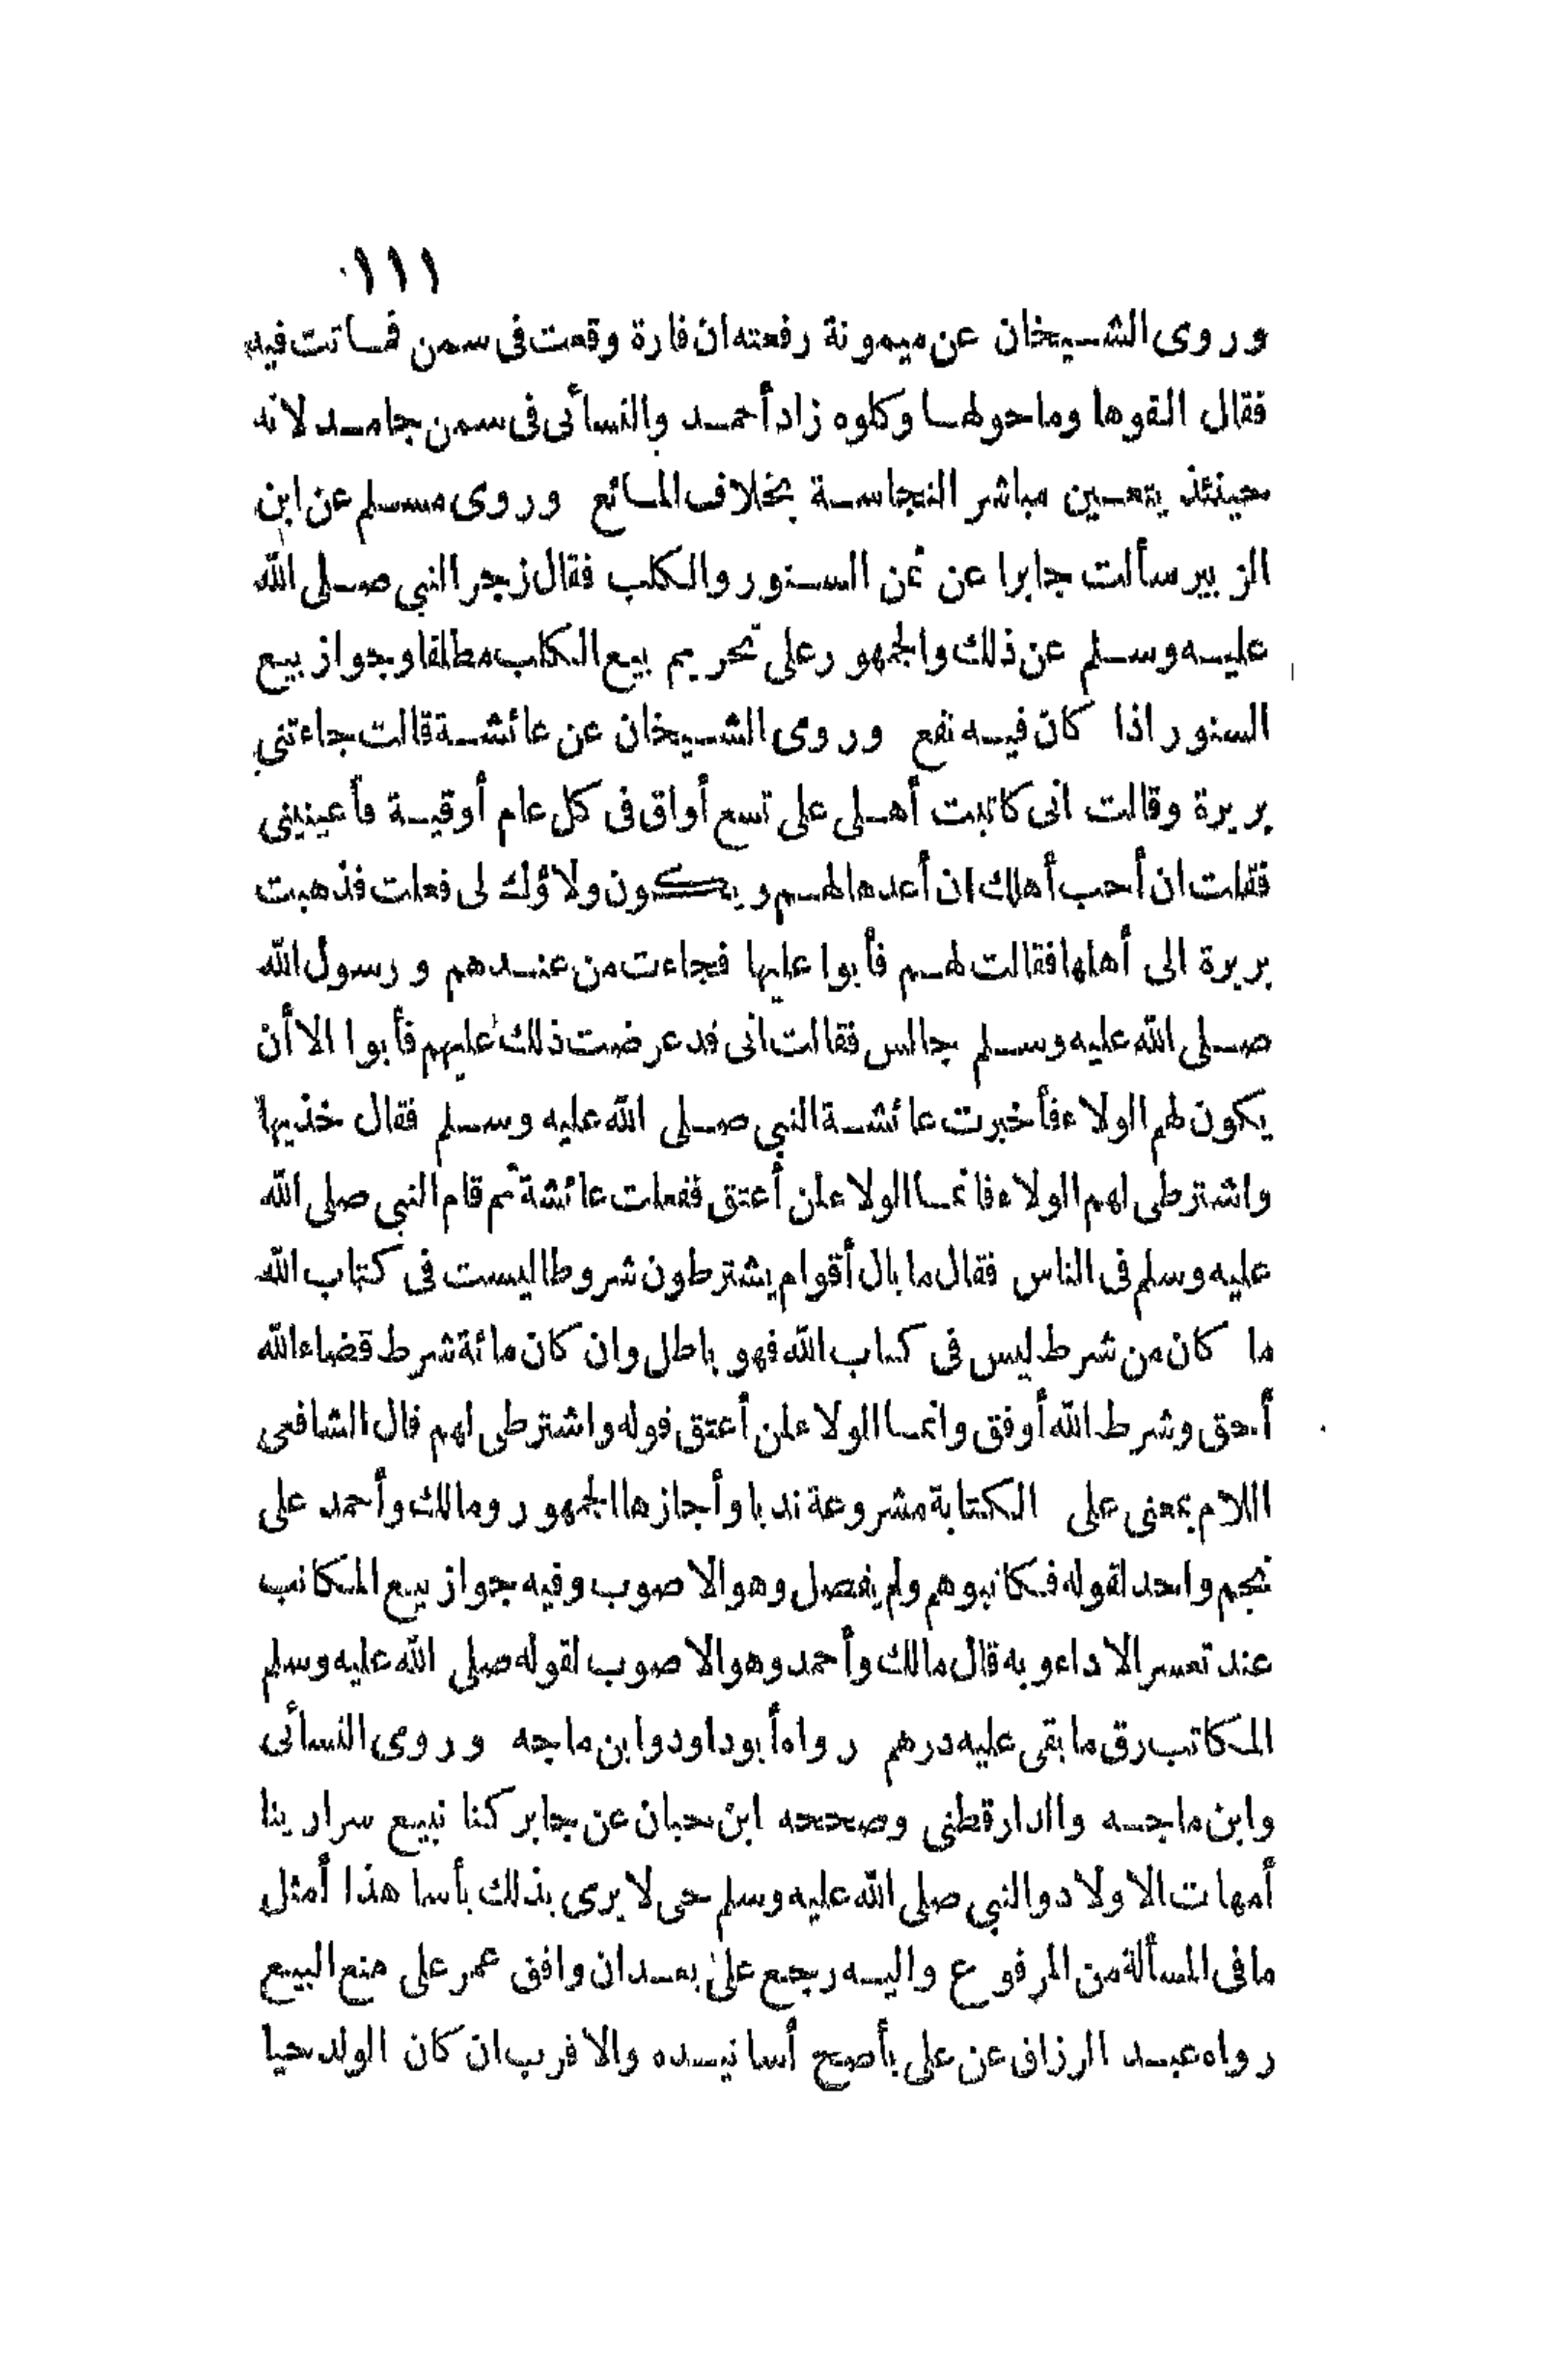 ١١١
وروى الشيخان عن ميمونة رفعته ان فارة وقعت فى سمن فماتت فيه
فقال القوها وما حولها وكلوه زاد أحمد والنسائى فى سمن جامد لانه
حينئذ يتعين مباشر النجاسة بخلاف المائع وروى مسلم عن ابن
الزبير سألت جابرا عن ثمن السنور والكلب فقال زجر النبي صلى الله
عليه وسلم عن ذلك والجمهور على تحريم بيع الكلب مطلقا وجواز بيع
السنور اذا كان فيه نفع وروى الشيخان عن عائشة قالت جاءتني
بريرة وقالت انى كاتبت أهلى على تسع أواق فى كل عام أوقية فأعينينى
فقلت ان أحب أهلك ان أعدها لهم ويكون ولاؤك لى فعلت فذهبت
بريرة الى أهلها فقالت لهم فأبوا عليها فجاءت من عندهم ورسول الله
صلى الله عليه وسلم جالس فقالت انى قد عرضت ذلك عليهم فأبوا الا أن
يكون لهم الولاء فأخبرت عائشة النبي صلى الله عليه وسلم فقال خذيها
واشترطى لهم الولاء فانما الولاء لمن أعتق ففعلت عائشة ثم قام النبي صلى الله
عليه وسلم فى الناس فقال ما بال أقوام يشترطون شروطا ليست فى كتاب الله
ما كان من شرط ليس فى كتاب الله فهو باطل وان كان مائة شرط قضاء الله
أحق وشرط الله أوفق وانما الولاء لمن أعتق قوله واشترطى لهم قال الشافعى
اللام بمعنى على الكتابة مشروعة ندبا وأجازها الجمهور ومالك وأحمد على
نجم واحد لقوله فكاتبوهم ولم يفصل وهو الاصوب وفيه جواز بيع المكاتب
عند تعسر الاداء وبه قال مالك وأحمد وهو الاصوب لقوله صلى الله عليه وسلم
المكاتب رق ما بقى عليه درهم رواه أبو داود وابن ماجه وروى النسائى
وابن ماجه والدارقطنى وصححه ابن حبان عن جابر كنا نبيع سرارينا
أمهات الاولاد والنبي صلى الله عليه وسلم حى لا يرى بذلك بأسا هذا أمثل
ما فى المسألة من المرفوع واليه رجع على بعد ان وافق عمر على منع البيع
رواه عبد الرزاق عن على بأصح أسانيده والاقرب ان كان الولد حيا